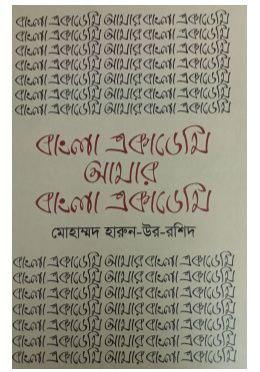 বাংলা একাডেমি আমার বাংলা একাডেমি
বাংলা একাডেমি আমার বাংলা একাডেমি
বাংলা একাডেমি আমার বাংলা একাডেমি
বাংলা একাডেমি আমার বাংলা একাডেমি
বাংলা একাডেমি আমার বাংলা একাডেমি
বাংলা একাডেমি আমার বাংলা একাডেমি
বাংলা একাডেমি
আমার
বাংলা একাডেমি
মোহাম্মদ হারুন-উর-রশিদ
বাংলা একাডেমি আমার বাংলা একাডেমি
বাংলা একাডেমি আমার বাংলা একাডেমি
বাংলা একাডেমি আমার বাংলা একাডেমি
বাংলা একাডেমি আমার বাংলা একাডেমি
বাংলা একাডেমি আমার বাংলা একাডেমি
বাংলা একাডেমি আমার বাংলা একাডেমি
বাংলা একাডেমি আমার বাংলা একাডেমি